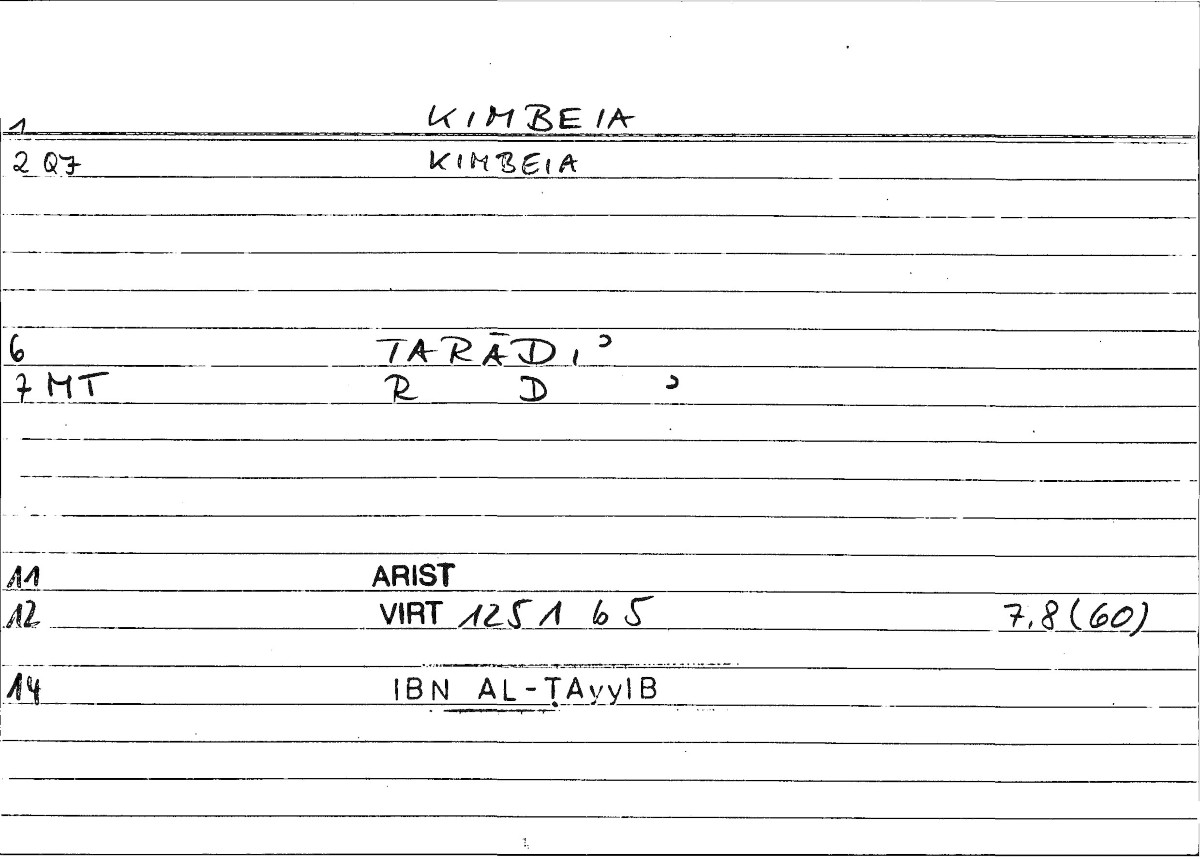 1 KIMBEIA
2 Q7 KIMBEIA
6 TARĀDIʾ
7 MT R D ʾ
11 ARIST
12 VIRT 1251 b 5 7,8 (60)
14 IBN AL-ṬAyyIB